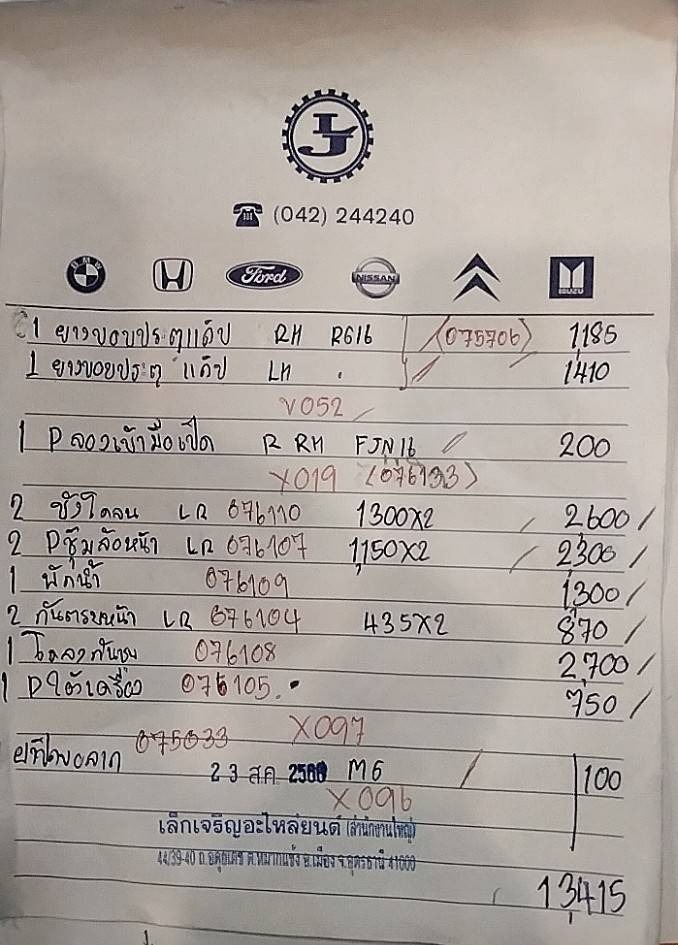 LJ
(042) 244240
BMW H Ford NISSAN ISUZU
1 ยางขอบประตูแค็ป RH RG16 (075706) 1,185
1 ยางขอบประตู แค็ป LH 1410
V052
1 Pลองเข้ามือเปิด R RH FJN16 200
X019 (076133)
2 LR 076110 1300x2 2,600
2 Pซุ้มล้อหน้า LR 076107 1,150x2 2,300
1 พักน้ำ 076109 1,300
2 หน้า LR 076104 435x2 870
1 076108 2,700
1 Pใต้เครื่อง 076105 750
X097
075033
23 สค. 2560 M6 100
X096
เล็กเจริญอะไหล่ยนต์ (สำนักงานใหญ่)
44/39-40 ถ.อดุลยเดช ต.หมากแข้ง อ.เมือง จ.อุดรธานี 41000
13,415